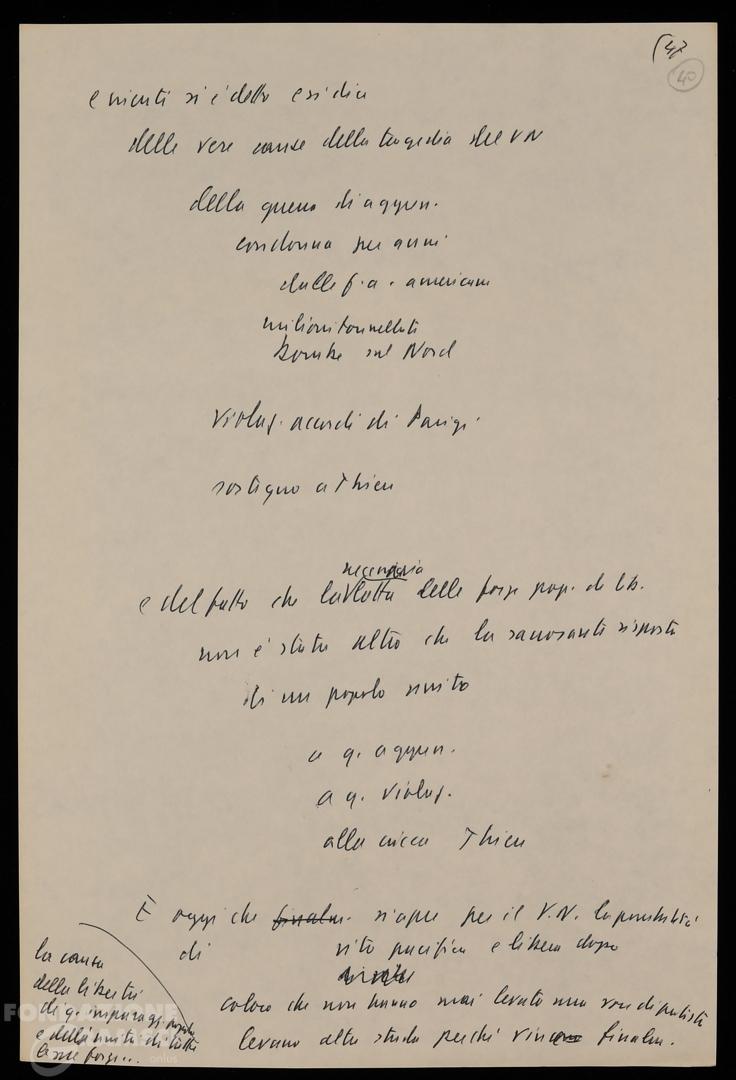 (47
40
e nienti si è detto e si dica
delle vere cause della tragedia del VN
della guerra di aggress.
condonna per anni
dalle f.a. americane
milioni tonnellate
bombe sul Nord
Violaz. accordi di Parigi
sostegno a Thieu
necessaria
e del fatto che la lotta delle forze pop. di lib.
non è stata altro che la sacrosanta risposta
di un popolo unito
a q. aggress.
a q. violaz.
alla cricca Thieu
È oggi che finalm. si apre per il V.N. la possibilità
di vita pacifica e libera dopo
coloro che non hanno mai levato una voce di protesta
levano alte strida perché vince finalm.
la causa
della libertà
di q. impareggi. popolo
e della unità di tutte
le sue forze..
FONDAZIONE
GRAMSCI
onlus